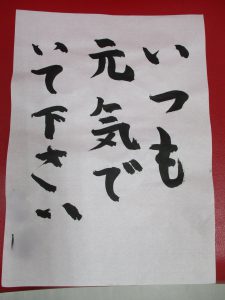 いつも
元気で
いて下さい